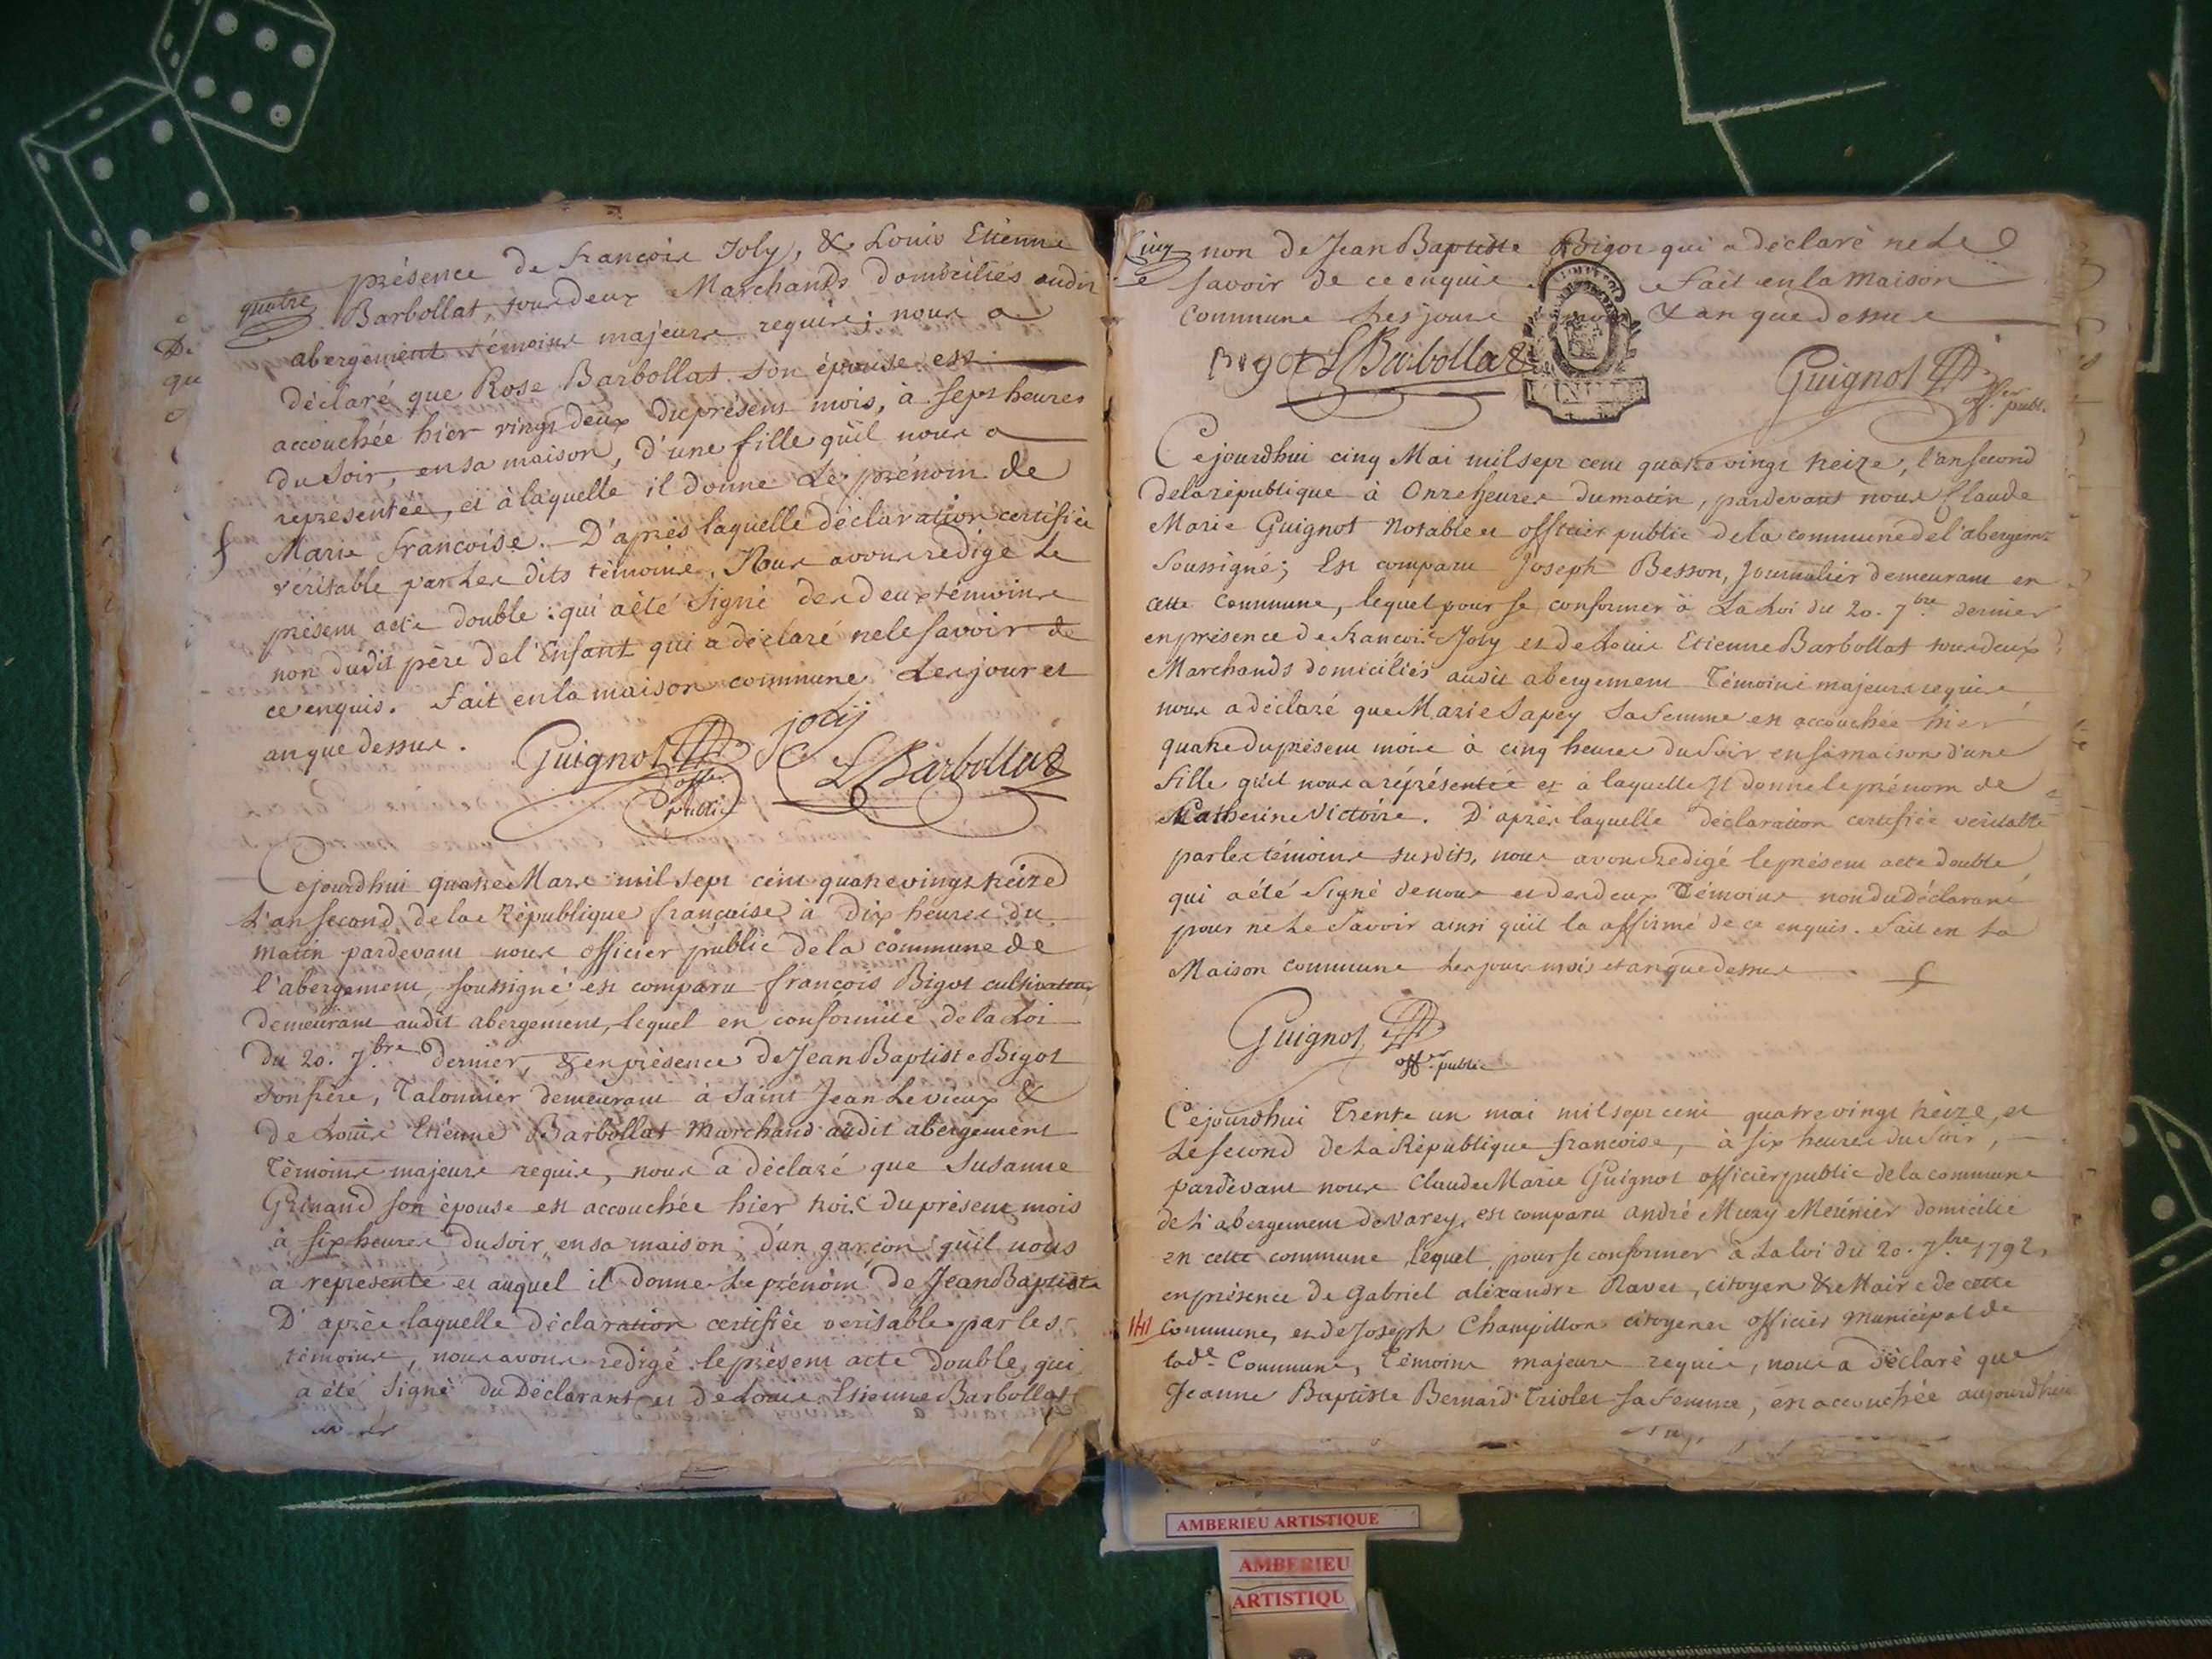 quatre
présence de françois Joly, & Louis Etienne
Barbollat, tous deux Marchands domiciliés audit
abergement témoins majeurs requis; nous a
déclaré que Rose Barbollat son épouse est
accouchée hier vingt deux du présent mois, à sept heures
du soir, en sa maison, d'une fille qu'il nous a
représentée, et à laquelle il donne le prénom de
Marie françoise. D'après laquelle déclaration certifiée
véritable par les dits témoins, Nous avons redigé le
présent acte double: qui a été signé des deux témoins
non dudit père de l'Enfant qui a déclaré ne le savoir de
ce enquis. fait en la maison commune les jour et
an que dessus.
Guignot
joly
offer
public
LBarbollat
Cejourdhui quatre Mars mil sept cent quatre vingt treize
L'an second de la République françaises à dix heures du
matin pardevant nous officier public de la commune de
l'abergement, soussigné est comparu françois Bigot cultivateur
demeurant audit abergement, lequel en conformité de la Loi
du 20. 7bre dernier, & en présence de Jean Baptiste Bigot
son frère, Talonnier demeurant à Saint Jean Le vieux &
de Louis Etienne Barbollat Marchand audit abergement
Témoins majeurs requis, nous a déclaré que Susanne
Grinand son épouse est accouchée hier trois du présent mois
à six heures du soir en sa maison, d'un garçon qu'il nous
a représenté et auquel il donne le prénom de Jean Baptiste
D'après laquelle déclaration certifiée véritable par les
témoins, nous avons redigé le présent acte double, qui
a été signé du Déclarant et de Louis Etienne Barbollat
Cinq
non de Jean Baptiste Bigot qui a déclaré ne le
savoir de ce enquis fait en la maison
commune les jours & an que dessus
Bigot LBarbollat
Guignot
offer publ.
Cejourdhui cinq Mai mil sept cent quatre vingt treize, l'an second
de la république à Onze heures du matin, pardevant nous Claude
Marie Guignot Notable et officier public de la commune de l'abergemt
soussigné; Est comparu Joseph Besson, Journalier demeurant en
cette Commune, lequel pour se conformer à La Loi du 20. 7bre dernier
en présence de françois Joly et de Louis Etienne Barbollat tous deux
Marchands domiciliés audit abergement Témoins majeurs requis
nous a déclaré que Marie Sapey sa femme est accouchée hier
quatre du présent mois à cinq heures du soir en sa maison d'une
fille qu'il nous a réprésentée et à laquelle Il donne le prénom de
Catherine Victoire. D'après laquelle déclaration certifiée véritable
par les témoins susdits, nous avons redigé le présent acte double
qui a été signé de nous et des deux Témoins non du déclarant
pour ne Le savoir ainsi qu'il la affirmé de ce enquis. fait en La
Maison commune les jour mois et an que dessus
Guignot
offer public
Cejourdhui Trente un mai mil sept cent quatre vingt treize, et
Le second de La République françoise, à six heures du soir,
pardevant nous Claude Marie Guignot officier public de la commune
de L'abergement de varey, est comparu andré Muzy Meûnier domicilié
en cette commune lequel, pour se conformer à La loi du 20. 7bre 1792,
en présence de Gabriel aléxandre Ravet, citoyen & Maire de cette
Commune, et de Joseph Champillon citoyen et officier municipal de
lade Commune, Témoins majeurs requis, nous a déclaré que
Jeanne Baptiste Bernard Triolet sa femme, est accouchée aujourdhui
AMBERIEU ARTISTIQUE
AMBERIEU
ARTISTIQU